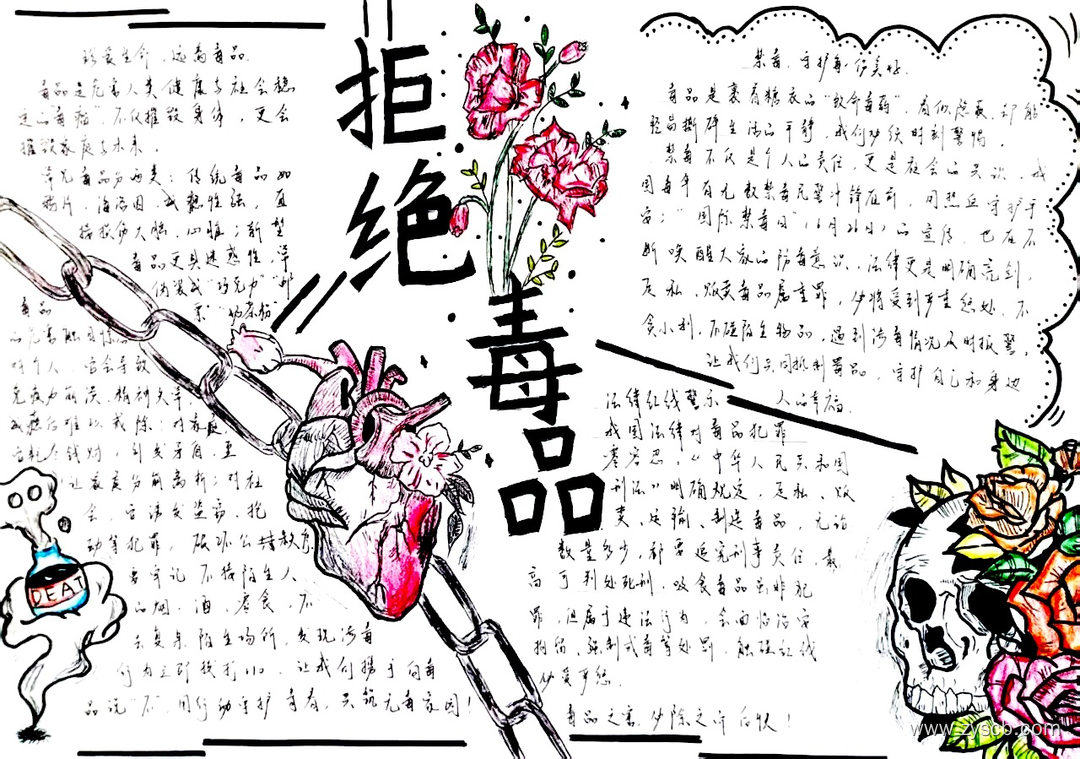 拒绝毒品
珍爱生命，远离毒品
毒品是危害人类健康与社会稳
定的毒瘤，不仅摧毁身体，更会
摧毁家庭与未来。
常见毒品分两类：传统毒品如
鸦片、海洛因，成瘾性强，直
接损伤大脑、心脏；新型
毒品更具迷惑性，常
伪装成“巧克力”
“奶茶粉”
毒品
对个人，它会导致
免疫力崩溃、精神失常
成瘾后难以戒除；对家庭，
会，它诱发盗窃、抢
动等犯罪，破坏公共秩序
要牢记不接陌生人
品烟、酒、零食，不
去复杂陌生场所，发现涉毒
行为立即拨打110，让我们携手向毒
品说“不”，用行动守护青春，共筑无毒家园！
禁毒，守护每一份美好
毒品是裹着糖衣的“致命毒药”，看似隐蔽，却能
轻易撕碎生活的平静，我们必须时刻警惕。
禁毒不仅是个人的责任，更是社会的共识，我
国每年有无数禁毒民警冲锋在前，用热血守护平
安；“国际禁毒日”（6月26日）的宣传，也在不
断唤醒大家的防毒意识。法律更是明确亮剑，
走私、贩卖毒品属重罪，必将受到严重惩处。不
贪小利，不碰陌生物品，遇到涉毒情况及时报警，
让我们共同抵制毒品，守护自己和身边
人的幸福。
法律红线警示
我国法律对毒品犯罪
零容忍，《中华人民共和国
刑法》明确规定，走私、贩
卖、运输、制造毒品，无论
数量多少，都要追究刑事责任，最
高可判处死刑，吸食毒品虽非犯
罪，但属于违法行为，会面临治安
拘留、强制戒毒等处罚，触碰红线
必受严惩。
毒品之害，必除之而后快！
DEAT
www.zyscb.com